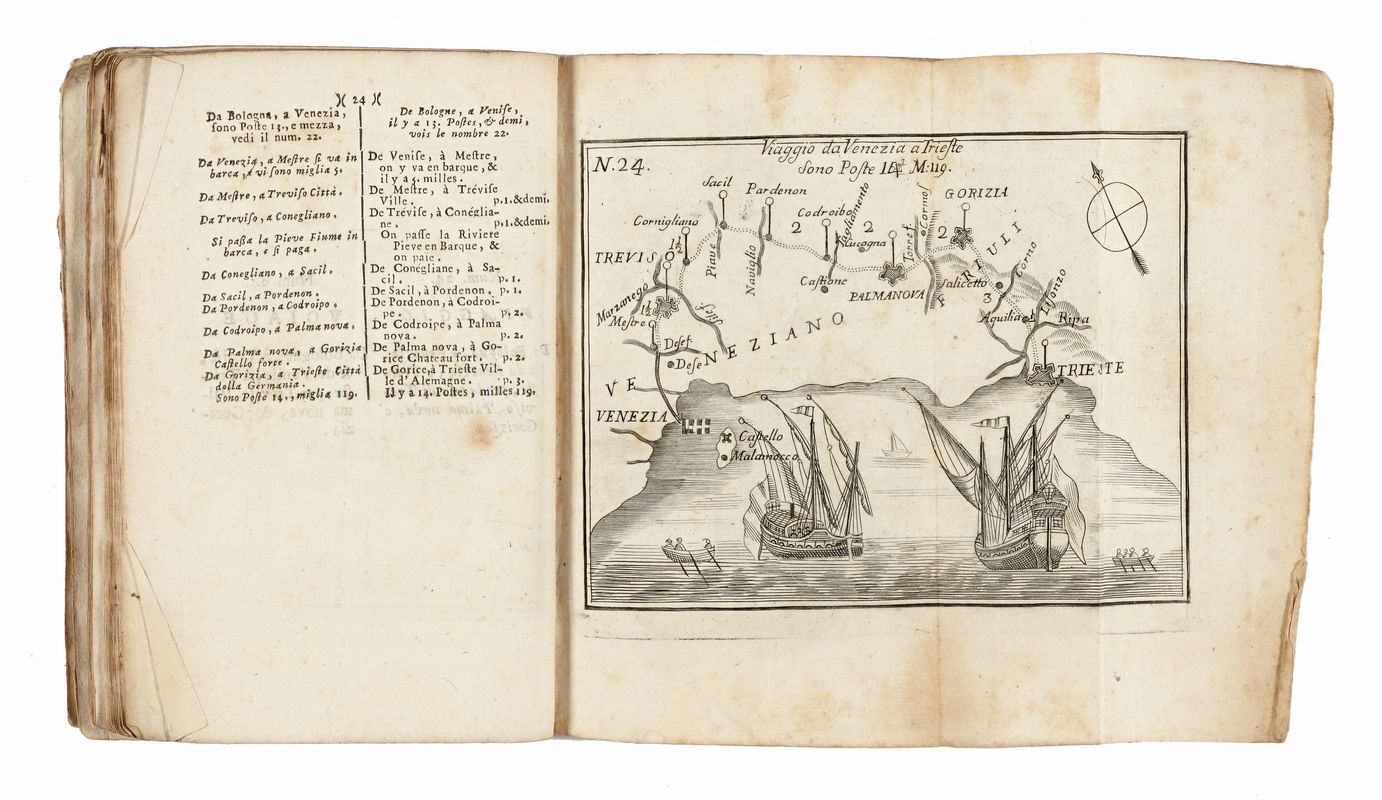 )( 24 )(
Da Bologna, a Venezia,
ſono Poſte 13., e mezza,
vedi il num. 22.
Da Venezia, a Meſtre ſi va in
barca, e vi ſono miglia 5.
Da Meſtre, a Treviſo Città.
Da Treviſo, a Conegliano.
Si paſſa la Pieve Fiume in
barca, e ſi paga.
Da Conegliano, a Sacil.
Da Sacil, a Pordenon.
Da Pordenon, a Codroipo.
Da Codroipo, a Palma nova.
Da Palma nova, a Gorizia
Caſtello forte.
Da Gorizia, a Trieſte Città
della Germania.
Sono Poſte 14., miglia 119.
De Bologne, a Veniſe,
il y a 13. Poſtes, & demi,
vois le nombre 22.
De Veniſe, à Meſtre,
on y va en barque, &
il y a 5. milles.
De Meſtre, à Tréviſe
Ville. p.1.&demi.
De Tréviſe, à Conéglia-
ne. p.1.&demi.
On paſſe la Riviere
Pieve en Barque, &
on paie.
De Conégliane, à Sa-
cil. p. 1.
De Sacil, à Pordenon. p. 1.
De Pordenon, à Codroi-
pe. p. 2.
De Codroipe, à Palma
nova. p. 2.
De Palma nova, à Go-
rice Chateau fort. p. 2.
De Gorice, à Trieſte Vil-
le d'Alemagne. p. 3.
Il y a 14. Poſtes, milles 119.
N. 24.
Viaggio da Venezia a Trieſte
Sono Poſte M: 119.
Sacil
Pardenon
Codroibo
Tagliamento
Cormos
GORIZIA
Cornigliano
1½
2
2
2
Lucogna
Torref
Piave
Naviglio
TREVISO
Caſtione
PALMANOVA
FRIULI
Salicetto
Corno
3
Liſonzo
Marzanego
1½
Sileſ
Meſtre
Aquilia
Ripa
Deſeſ
Deſe
VENEZIANO
TRIESTE
VENEZIA
Caſtello
Malamocco